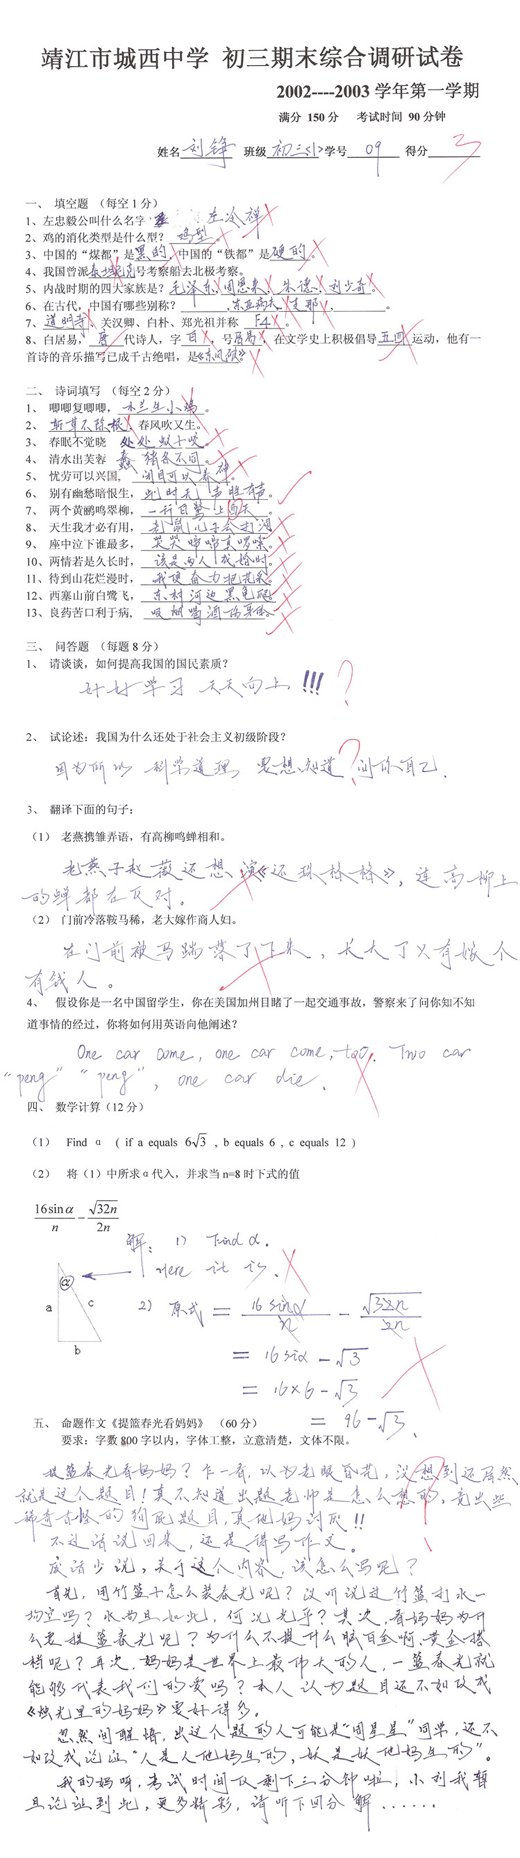 靖江市城西中学 初三期末综合调研试卷
2002----2003 学年第一学期
满分 150 分 考试时间 90 分钟
姓名 刘锋 班级 初三<1> 学号 09 得分 3
一、 填空题 （每空 1 分）
1、左忠毅公叫什么名字 左冷禅
2、鸡的消化类型是什么型？ 鸡型 。
3、中国的“煤都”是 黑的 ，中国的“铁都”是 硬的 。
4、我国曾派 号考察船去北极考察。
5、内战时期的四大家族是？ 毛泽东、周恩来、朱德、刘少奇 。
6、在古代，中国有哪些别称？ 、东亚病夫、支那、 。
7、 道明寺 、关汉卿、白朴、郑光祖并称 F4 。
8、白居易， 唐 代诗人，字 白 ，号 居易 ，在文学史上积极倡导 五四 运动，他有一
首诗的音乐描写已成千古绝唱，是 《东风破》
二、 诗词填写 （每空 2 分）
1、 唧唧复唧唧， 木兰生小鸡 。
2、 斩草不除根 ，春风吹又生。
3、 春眠不觉晓 处处蚊子咬 。
4、 清水出芙蓉 蠢猪各不同 。
5、 忧劳可以兴国， 闭目可以养神
6、 别有幽愁暗恨生， 此时无声胜有声 。
7、 两个黄鹂鸣翠柳， 一行白鹭上西天 。
8、 天生我才必有用， 老鼠儿子会打洞
9、 座中泣下谁最多， 哭哭啼啼真啰嗦 。
10、两情若是久长时， 该是两人成婚时 。
11、待到山花烂漫时， 我便奋力把花采 。
12、西塞山前白鹭飞， 东村河边黑龟爬
13、良药苦口利于病， 吸烟喝酒伤身体 。
三、 问答题 （每题 8 分）
1、 请谈谈，如何提高我国的国民素质？
好好学习 天天向上 !!! ?
2、 试论述：我国为什么还处于社会主义初级阶段？
因为所以 科学道理 要想知道 ? 问你自己．
3、 翻译下面的句子：
（1） 老燕携雏弄语，有高柳鸣蝉相和。
老燕子赵薇还想演《还珠格格》，连高柳上
的蝉都在反对。
（2） 门前冷落鞍马稀，老大嫁作商人妇。
在门前被马踹落了下来，长大了又有嫁个
有钱人。
4、 假设你是一名中国留学生，你在美国加州目睹了一起交通事故，警察来了问你知不知
道事情的经过，你将如何用英语向他阐述？
One car come, one car come, too. Two car
“peng” “peng”, one car die.
四、 数学计算(12 分)
（1） Find α ( if a equals 6√3 , b equals 6 , c equals 12 )
（2） 将（1）中所求 α 代入，并求当 n=8 时下式的值
16sinα/n − √32n/2n
解：1) Find α.
α
Here it is.
a c
b
2) 原式 = 16sinα/n − √32n/2n
= 16siα − √3
= 16×6 − √3
= 96 − √3
五、 命题作文《提篮春光看妈妈》 （60 分）
要求：字数 800 字以内，字体工整，立意清楚，文体不限。
提篮春光看妈妈？乍一看，以为老眼昏花，没想到还居然
就是这个题目！真不知道出题老师是怎么想的，竟出些
稀奇古怪的狗屁题目，真他妈讨厌!!
不过话说回来，还是得写作文。
废话少说，关于这个内容，该怎么写呢？
首先，用竹篮子怎么装春光呢？没听说过竹篮打水一
场空吗？水尚且如此，何况光乎？其次，看妈妈为什
么要提篮春光呢？为什么不提什么脑白金啊、黄金搭
档呢？再次，妈妈是世界上最伟大的人，一篮春光就
能够代表我们的爱吗？本人认为题目还不如改成
《烛光里的妈妈》要好得多。
忽然间醒悟，出这个题的人可能是“周星星”同学，还不
如改成论证“人是人他妈生的，妖是妖他妈生的”。
我的妈呀，考试时间仅剩下三分钟啦，小利我暂
且论证到此，更多精彩，请听下回分解......